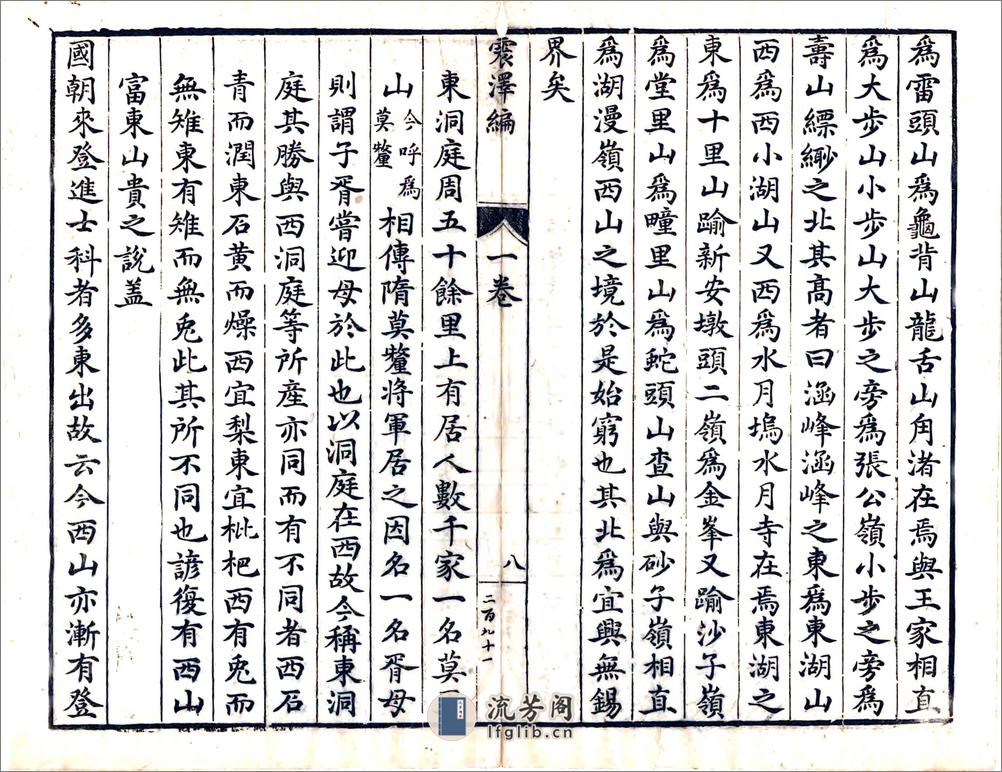 爲雷頭山爲龜背山龍舌山角渚在焉與王家相直
爲大步山小步山大步之旁爲張公嶺小步之旁爲
壽山縹緲之北其髙者曰涵峰涵峰之東爲東湖山
西爲西小湖山又西爲水月塢水月寺在焉東湖之
東爲十里山踰新安墩頭二嶺爲金峯又踰沙子嶺
爲堂里山爲疃里山爲蛇頭山查山與砂子嶺相直
爲湖漫嶺西山之境於是始窮也其北爲宜興無錫
界矣
震澤編
一卷
八
二百九十一
東洞庭周五十餘里上有居人數千家一名莫
山今呼爲莫釐相傳隋莫釐將軍居之因名一名胥母
則謂子胥嘗迎母於此也以洞庭在西故今稱東洞
庭其勝與西洞庭等所産亦同而有不同者西石
青而潤東石黄而燥西宜梨東宜枇杷西有兎而
無雉東有雉而無兎此其所不同也諺復有西山
富東山貴之說盖
國朝來登進士科者多東出故云今西山亦漸有登
流芳阁
lfglib.cn